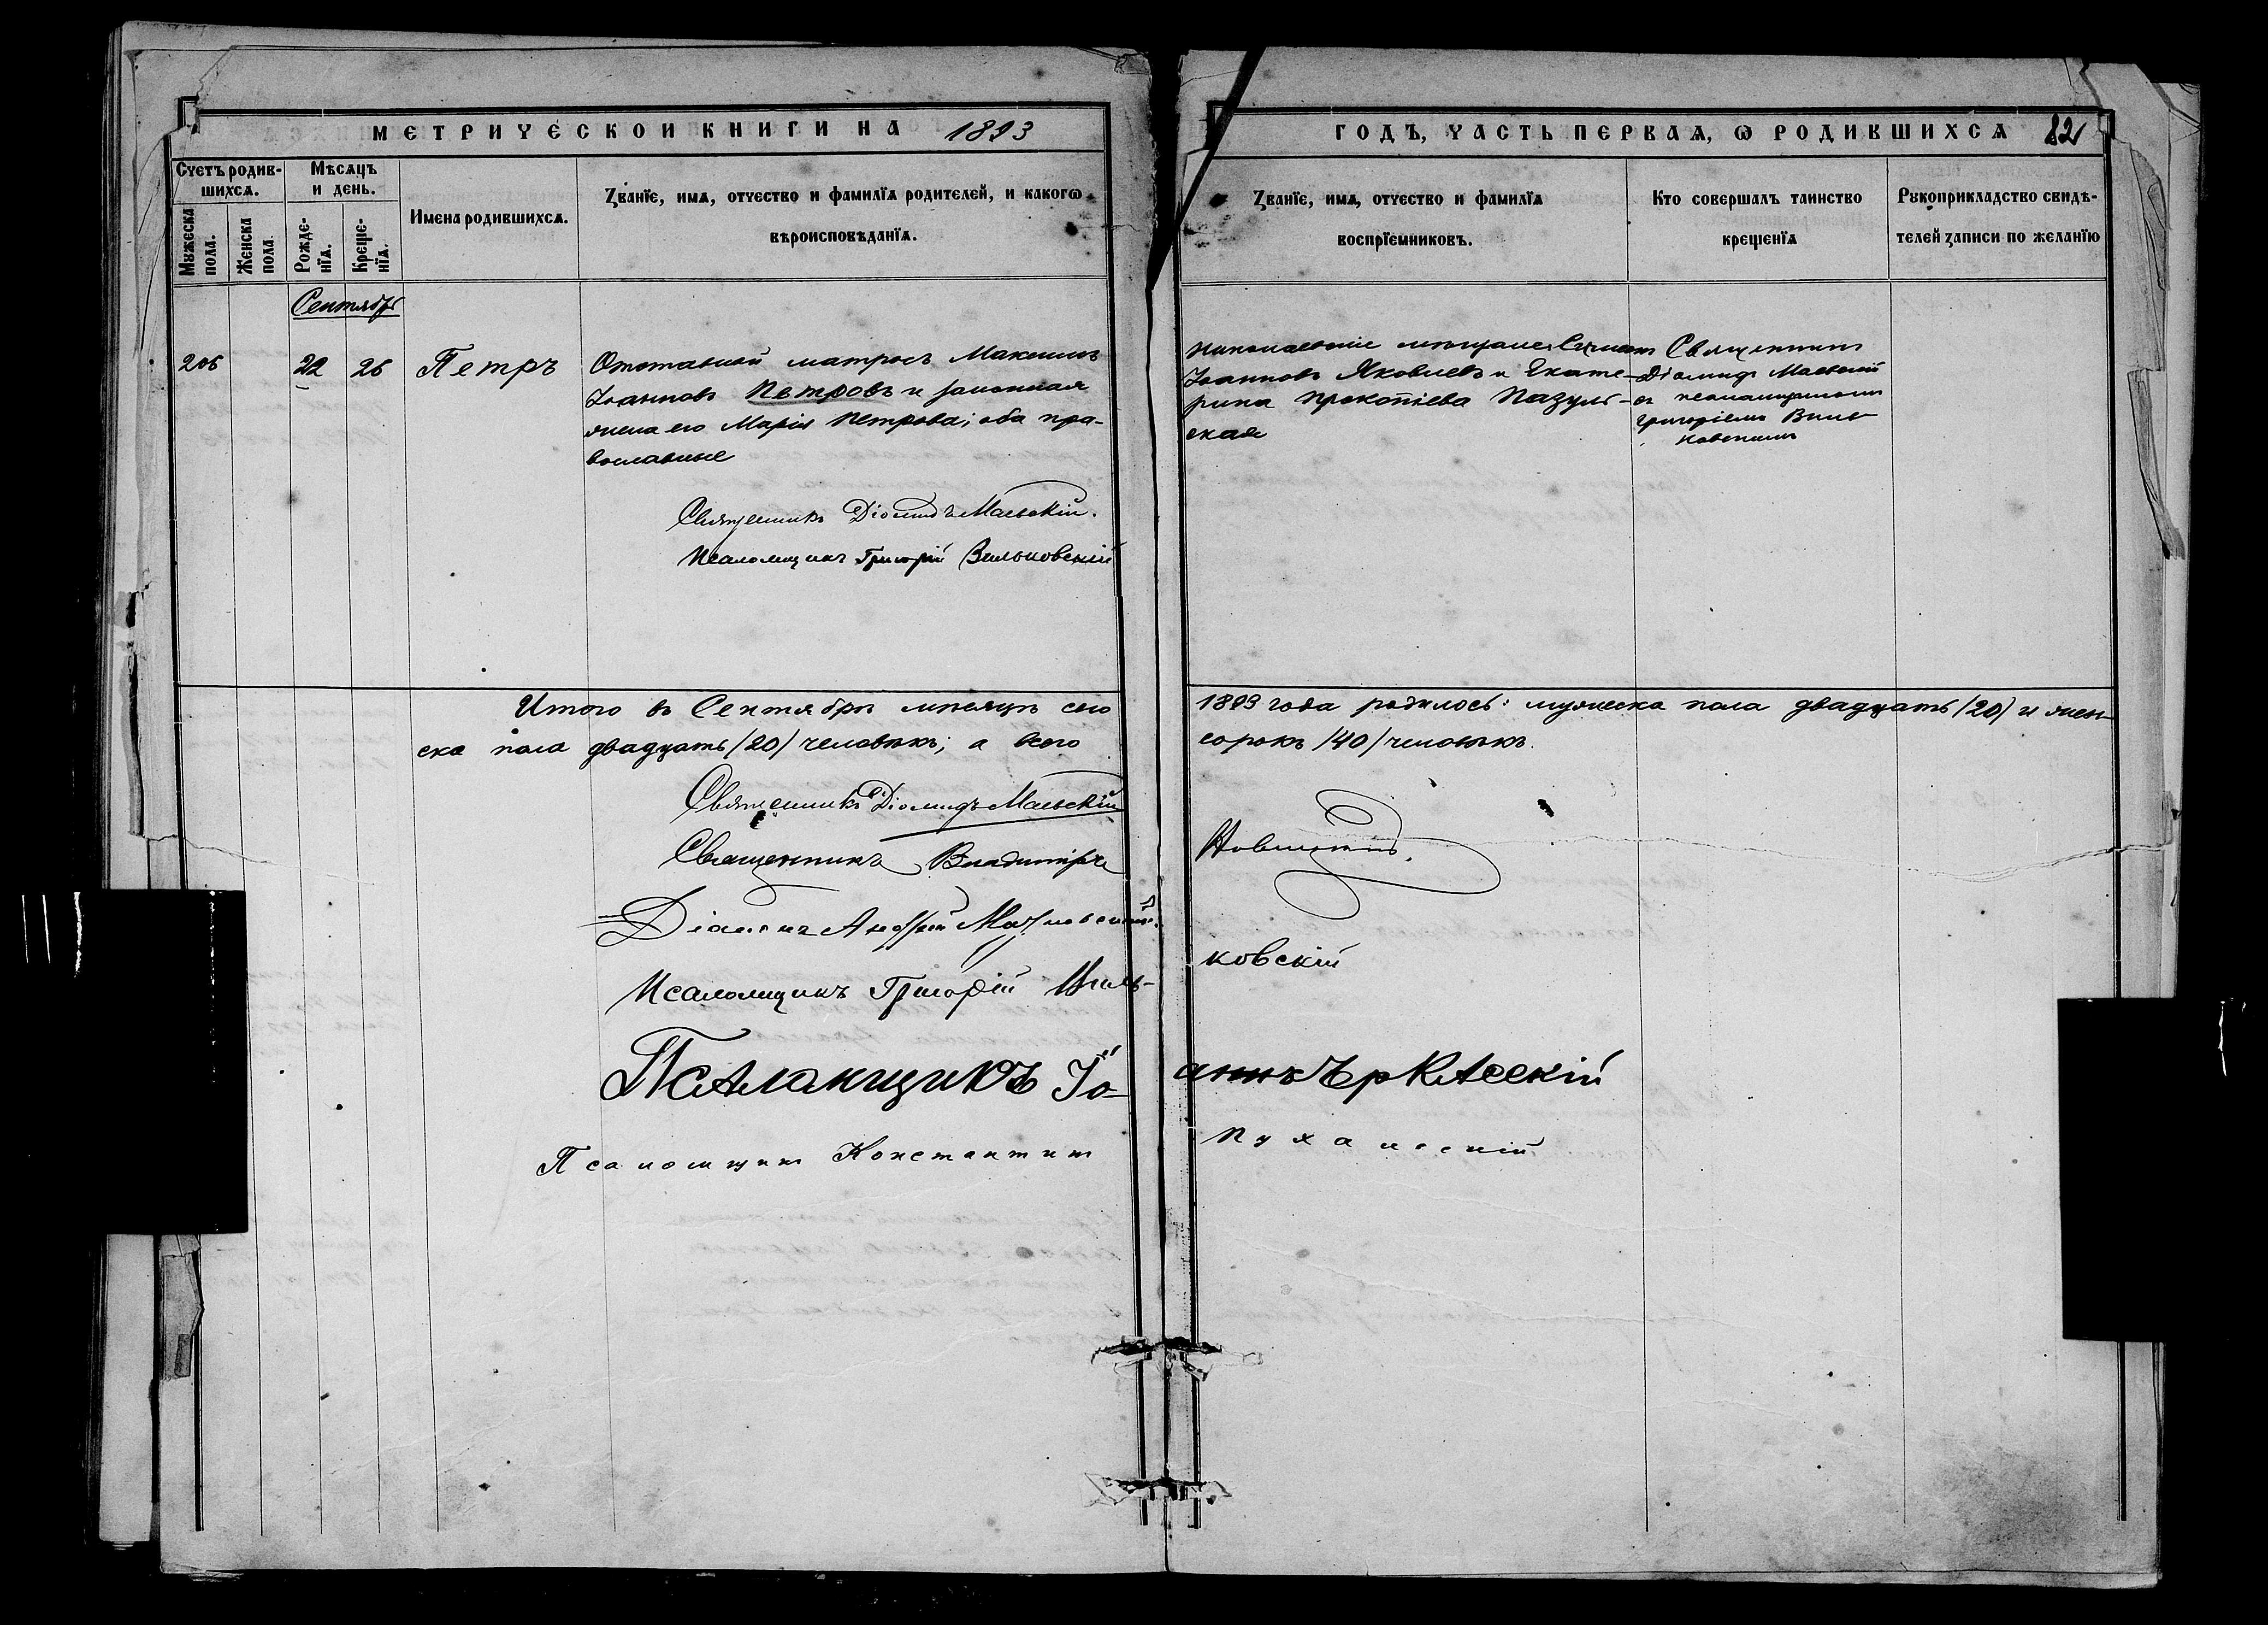 МЕТРИЧЕСКОЙ КНИГИ НА 1893
ГОДЪ, ЧАСТЬ ПЕРВАЯ, Ѡ РОДИВШИХСЯ 82
Счетъ родив-
шихся.
Мѣсяцъ
и день.
Мужеска
пола.
Женска
пола.
Рожде-
нїя.
Креще-
нїя.
Имена родившихся.
Званїе, имя, отчество и фамилїя родителей, и какогѡ
вѣроисповѣданїя.
Званїе, имя, отчество и фамилїя
воспрїемниковъ.
Кто совершалъ таинство
крещенїя
Рукоприкладство свидѣ-
телей записи по желанїю
Сентябрь
206 22 26 Петръ
Отставной матросъ Максимъ
Іоанновъ Петровъ и законная
жена его Марія Петрова; оба пра-
вославные
Священникъ Діомидъ Маевскій.
Псаломщикъ Григорій Вильковскій
Николаевскіе мѣщане
Іоанновъ Яковлевъ и Екате-
рина Прокопіева Пазуль-
ская
Священникъ
Діомидъ Маевскій
съ псаломщикомъ
Григоріемъ Виль-
ковскимъ
Итого въ Сентябрѣ мѣсяцѣ сего
1893 года родилось: мужеска пола двадцать /20/ и жен-
ска пола двадцать /20/ человѣкъ; а всего
сорокъ /40/ человѣкъ.
Священникъ Діомидъ Маевскій
Священникъ Владиміръ
Діаконъ Андрей
Псаломщикъ Григорій Виль-
ковскій
Псаломщикъ Іо-
аннъ
Псаломщикъ Константинъ